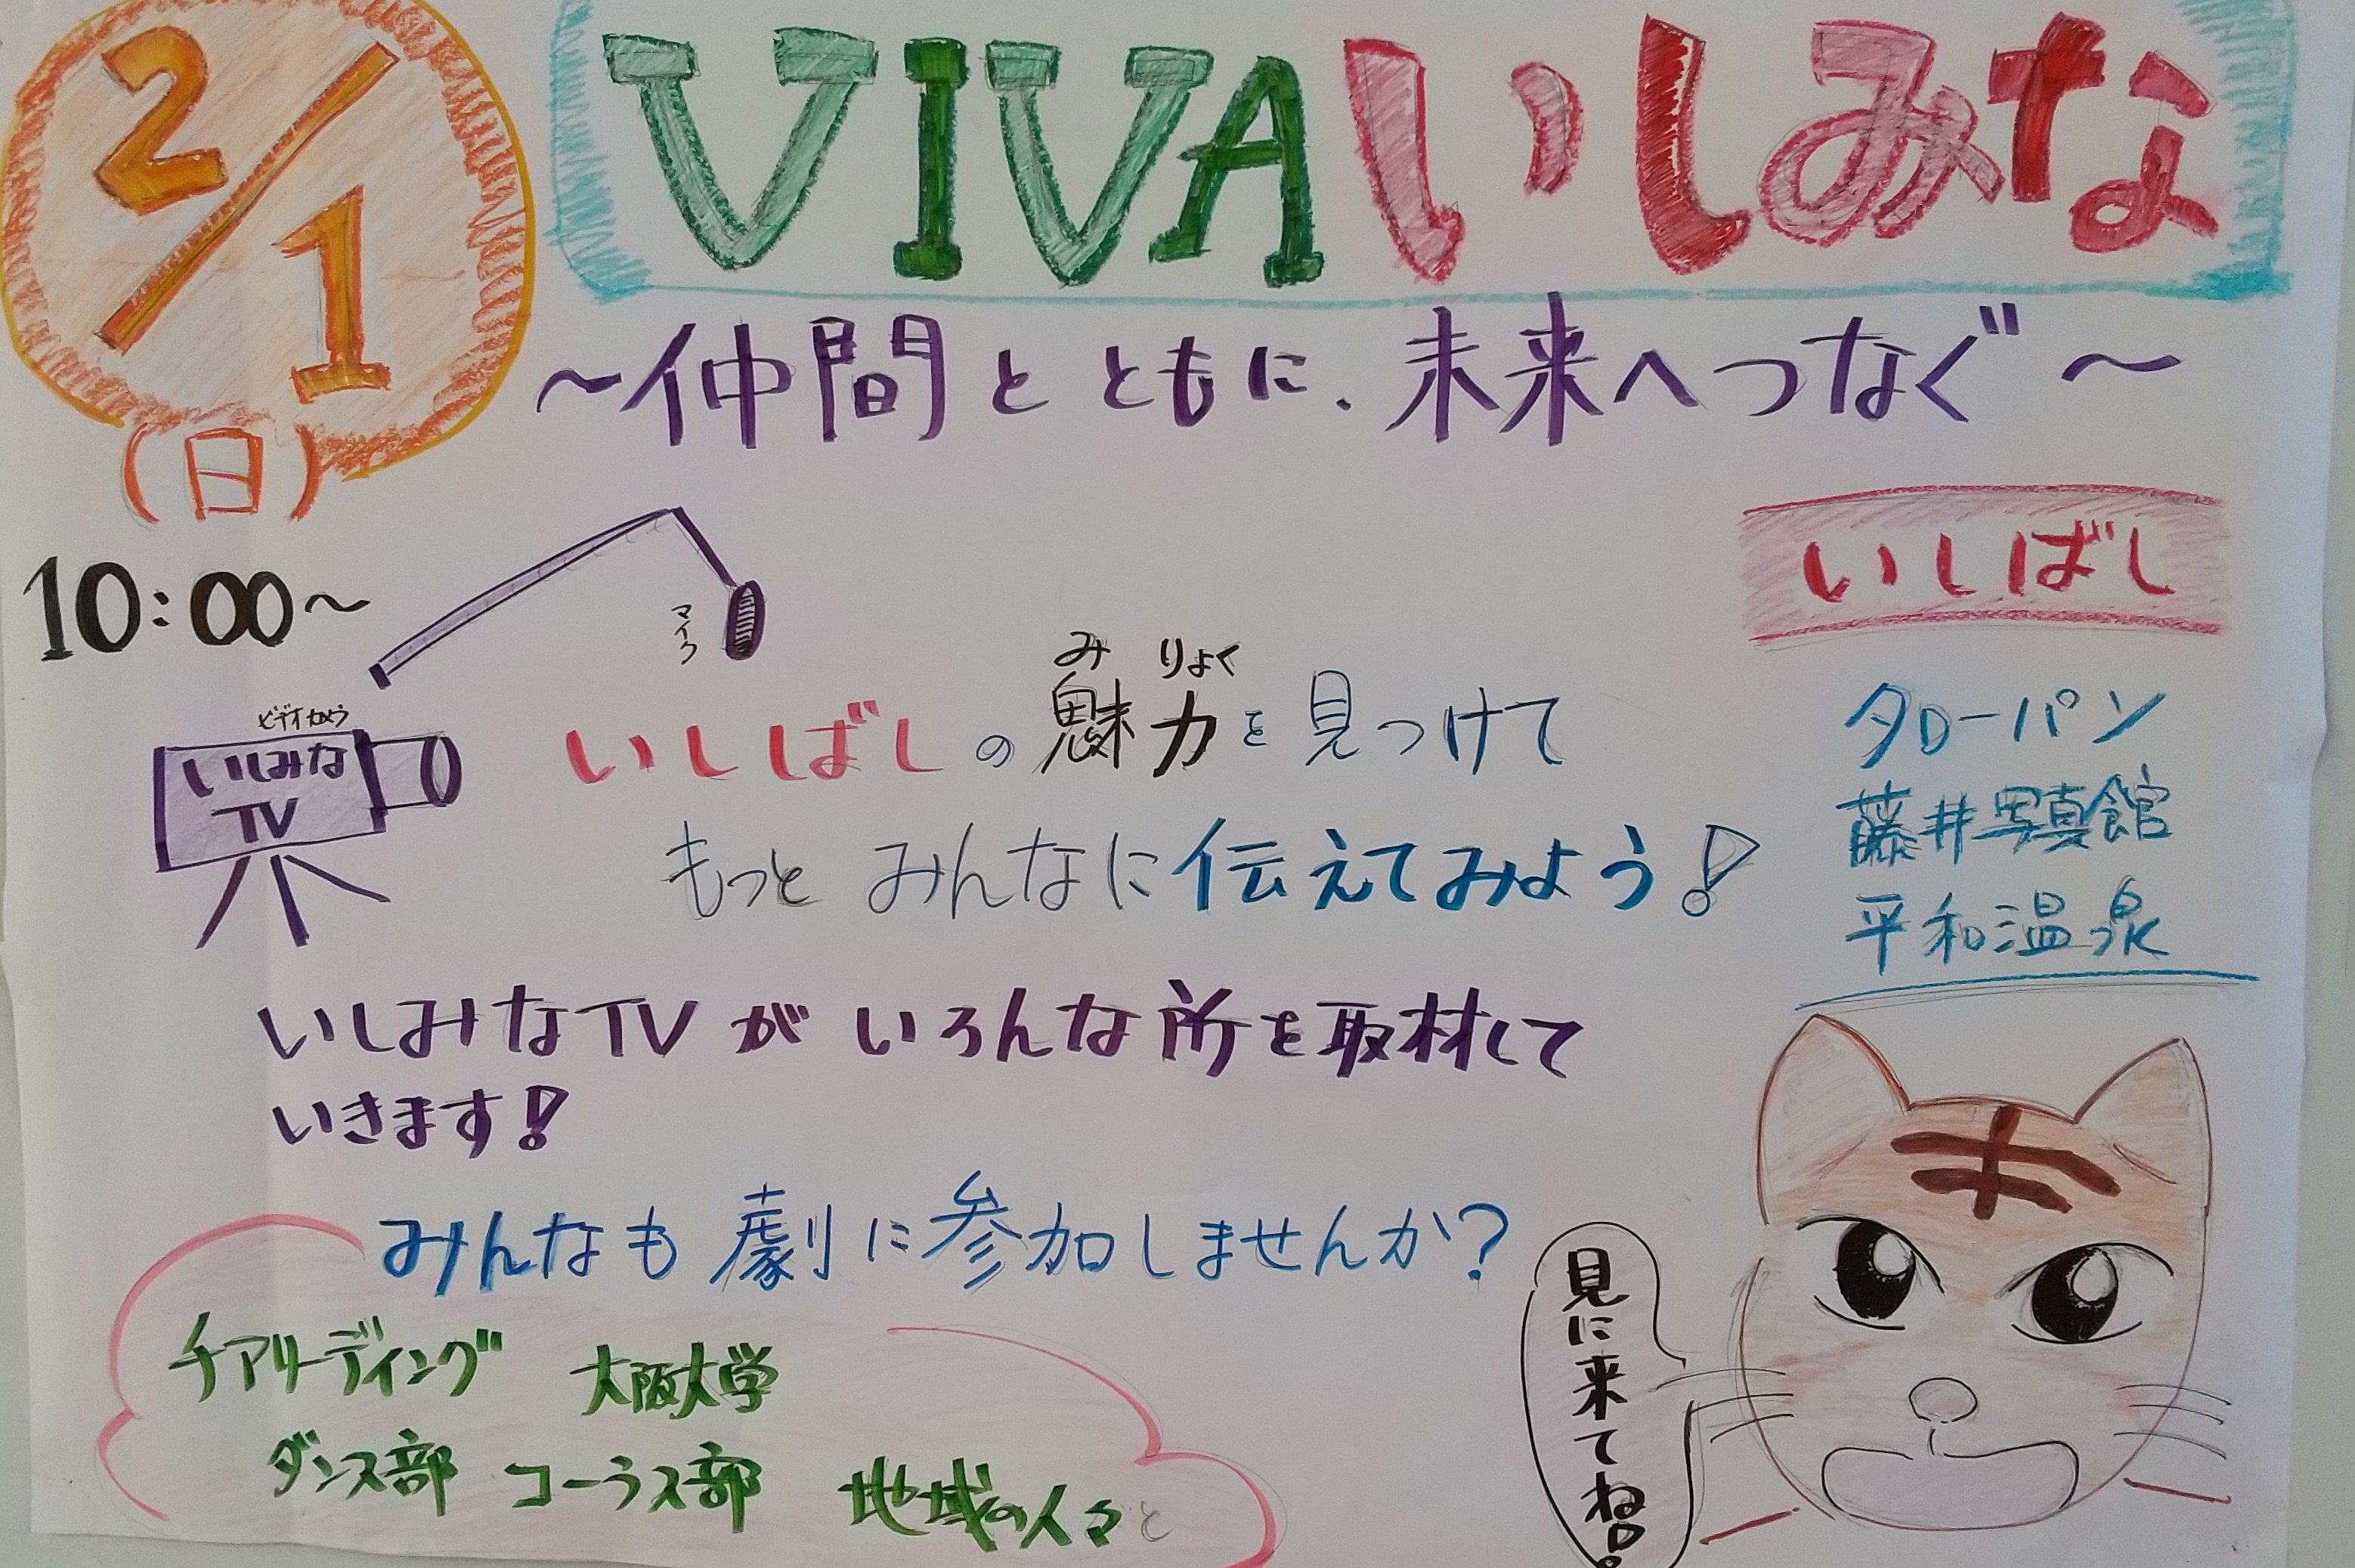 2/1
(日)
VIVAいしみな
~仲間とともに.未来へつなぐ~
10:00~
マイク
いしばし
み りょく
いしばしの魅力を見つけて
もっとみんなに伝えてみよう!
タローパン
藤井写真館
平和温泉
いしみな
TV
いしみなTVがいろんな所を取材して
いきます!
みんなも劇に参加しませんか?
チアリーディング 大阪大学
ダンス部 コーラス部 地域の人々と
見に来てね!